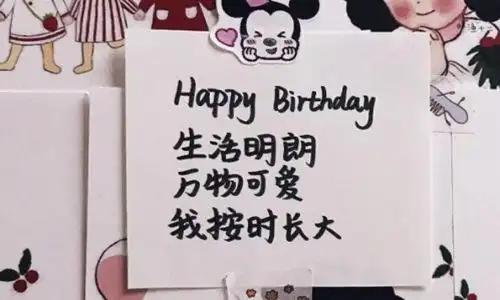 Happy Birthday
生活明朗
万物可爱
我按时长大